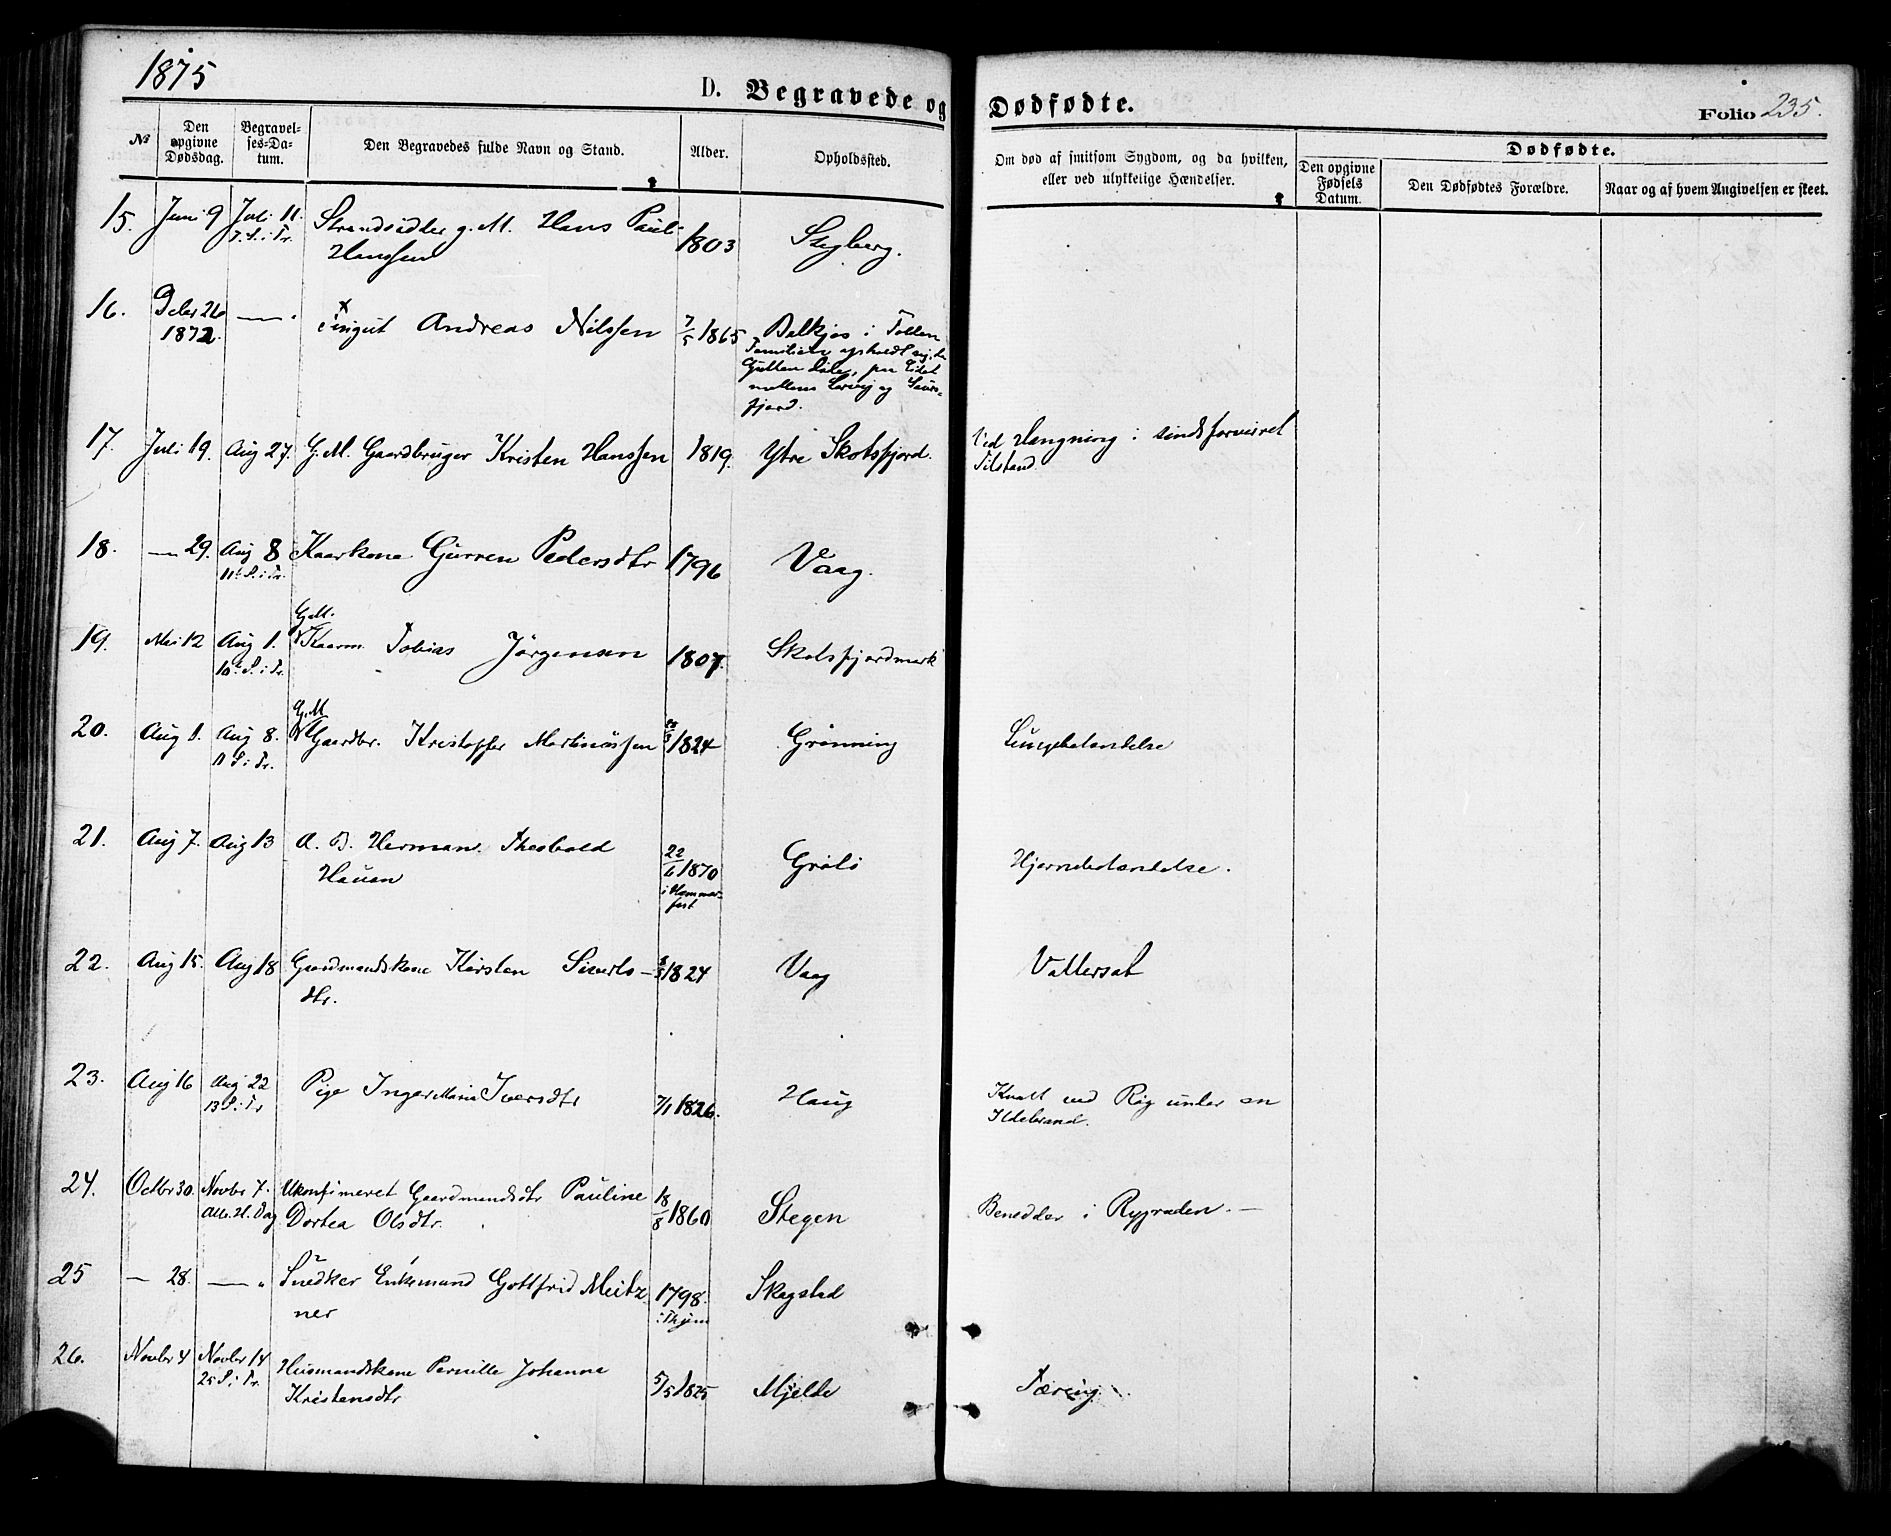 1875
D. Begravede og Dødfødte.
Folio 235.
№ Den opgivne Dødsdag. Begravelses-Datum. Den Begravedes fulde Navn og Stand. Alder. Opholdssted. Om død af smitsom Sygdom, og da hvilken, eller ved ulykkelige Hændelser.
Dødfødte.
Den opgivne Fødsels Datum. Den Dødfødtes Forældre. Naar og af hvem Angivelsen er skeet.
15. Juni 9 Juli 11. Strandsidder g. M. Hans Paul 1803 Stegberg.
7. S. i Tr. Hanssen
16. Octbr 26 — Andreas Nilssen 7/5 1865 i
1872. Familien opholdt sig
mellem og
fjord.
17. Juli 19. Aug 27. G. M. Gaardbruger Kristen Hanssen 1819. Ytre Skotsfjord. Ved Hængning i sindsforvirret
Tilstand.
18. — 29. Aug 8 Kaarkone Gurren Pedersdtr 1796 Vaag.
11te S. i Tr.
19. Mai 12 Aug 1. G.M. Kaarm. Tobias Jørgensen 1807. Skotsfjordmark
10de S. i Tr.
20. Aug 1. Aug 8. G.M. Gaardbr. Kristoffer Martinussen 1824 Grønning Lungebetændelse
11 S. i Tr.
21. Aug 7. Aug 13 A. B. Herman Theobald 22/6 1870 Grøtø Hjernebetændelse.
Hauan i Hammerfest
22. Aug 15. Aug 18 Gaardmandskone Kirsten Siverts- 1824 Vaag Vattersot
dtr.
23. Aug 16 Aug 22 Pige Inger Maria Iversdtr 7/1 1826. Haug Kvalt ved Røg under en
13 S. i Tr. Ildebrand.
24. Octbr 30. Novbr 7. Ukonfirmeret Gaardmandsdtr Pauline 18/8 1860 Stegen Benedder i Rygraden. —
Alle H. Dag Dortea Olsdtr.
25 — 28. — " Snedker Enkemand Gottfrid Meitz 1798. Skagstad
ner i Thjem
26. Novbr 4 Novbr 14 Husmandskone Pernille Johanna 5/5 1825 Mjelde Tæring.
25 S. i Tr. Kristensdtr